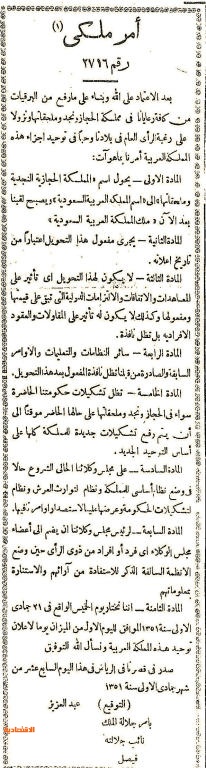 أمر ملكي (١)
رقم ٢٧١٦
بعد الاعتماد على الله وبناء على مارفع من البرقيات
من كافة رعايانا في مملكة الحجاز ونجد وملحقاتها ونزولا
على رغبة الرأى العام في بلادنا وحبا في توحيد اجزاء هذه
المملكة العربية أمرنا بما هو آت:
المادة الاولى – يحول اسم «المملكة الحجازية النجدية
وملحقاتها» الى اسم المملكة العربية السعودية» ويصبح لقبنا
بعد الآن «ملك المملكة العربية السعودية»
المادة الثانية – يجرى مفعول هذا التحويل اعتباراً من
تاريخ اعلانه.
المادة الثالثة – لا يكون لهذا التحويل اى تأثير على
المعاهدات والاتفاقات والالتزامات الدولية التى تبقى على قيمتها
ومفعولها وكذلك لا يكون له تأثير على المقاولات والعقود
الافرادية بل تظل نافذة.
المادة الرابعة – سائر النظامات والتعليمات والاوامر
السابقة والصادرة من قبلنا تظل نافذة المفعول بعد هذا التحويل.
المادة الخامسة – تظل تشكيلات حكومتنا الحاضرة
سواء فى الحجاز ونجد وملحقاتها على حالها الحاضر موقتاً الى
أن يتم وضع تشكيلات جديدة للمملكة كلها على
أساس التوحيد الجديد.
المادة السادسة – على مجلس وكلائنا الحالى الشروع حالا
فى وضع نظام أساسى للمملكة ونظام لتوارث العرش ونظام
لتشكيلات الحكومة وعرضها علينا لاستصدار اوامرنا فيها.
المادة السابعة – لرئيس مجلس وكلائنا ان يضم الى أعضاء
مجلس الوكلاء اى فرد أو افراد من ذوى الرأى حين وضع
الانظمة السالفة الذكر للاستفادة من آرائهم والاستنارة
بمعلوماتهم
المادة الثامنة – اننا نختار يوم الخميس الواقع فى ٢١ جمادى
الاولى سنة ١٣٥١ الموافق لليوم الاول من الميزان يوما لاعلان
توحيد هذه المملكة العربية ونسأل الله التوفيق
صدر فى قصرنا فى الرياض فى هذا اليوم السابع عشر من
شهر جمادى الاولى سنة ١٣٥١
(التوقيع) عبد العزيز
بامر جلالة الملك
نائب جلالته
فيصل
الاقتصادية